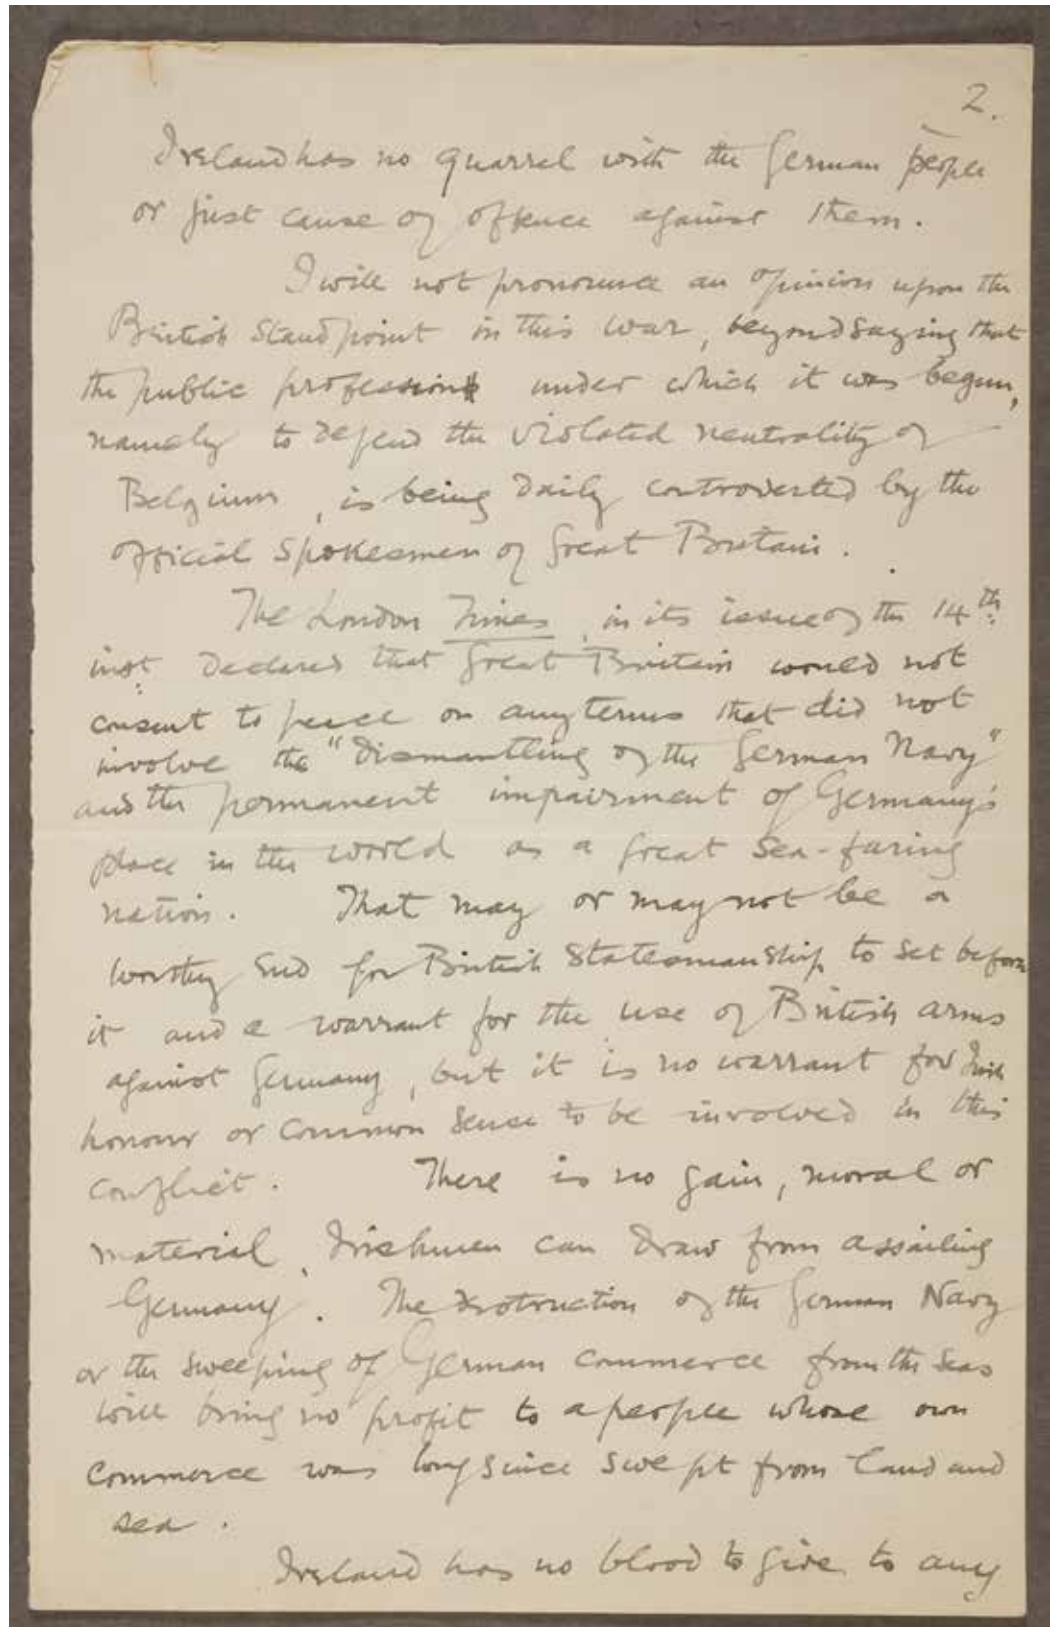 2.
Ireland has no quarrel with the German people
or just cause of offence against them.
I will not pronounce an opinion upon the
British Standpoint in this war, beyond saying that
the public profession under which it was begun,
namely to defend the violated neutrality of
Belgium, is being daily controverted by the
official Spokesmen of Great Britain.
The London Times, in its issue of the 14th
inst declared that Great Britain would not
consent to peace on any terms that did not
involve the "dismantling of the German Navy"
and the permanent impairment of Germany's
place in the world as a great sea-faring
nation. That may or may not be a
worthy end for British Statesmanship to set before
it and a warrant for the use of British arms
against Germany, but it is no warrant for Irish
honour or common sense to be involved in this
conflict. There is no gain, moral or
material, Irishmen can draw from assailing
Germany. The destruction of the German Navy
or the sweeping of German commerce from the seas
will bring no profit to a people whose own
commerce was long since swept from land and
sea.
Ireland has no blood to give to any